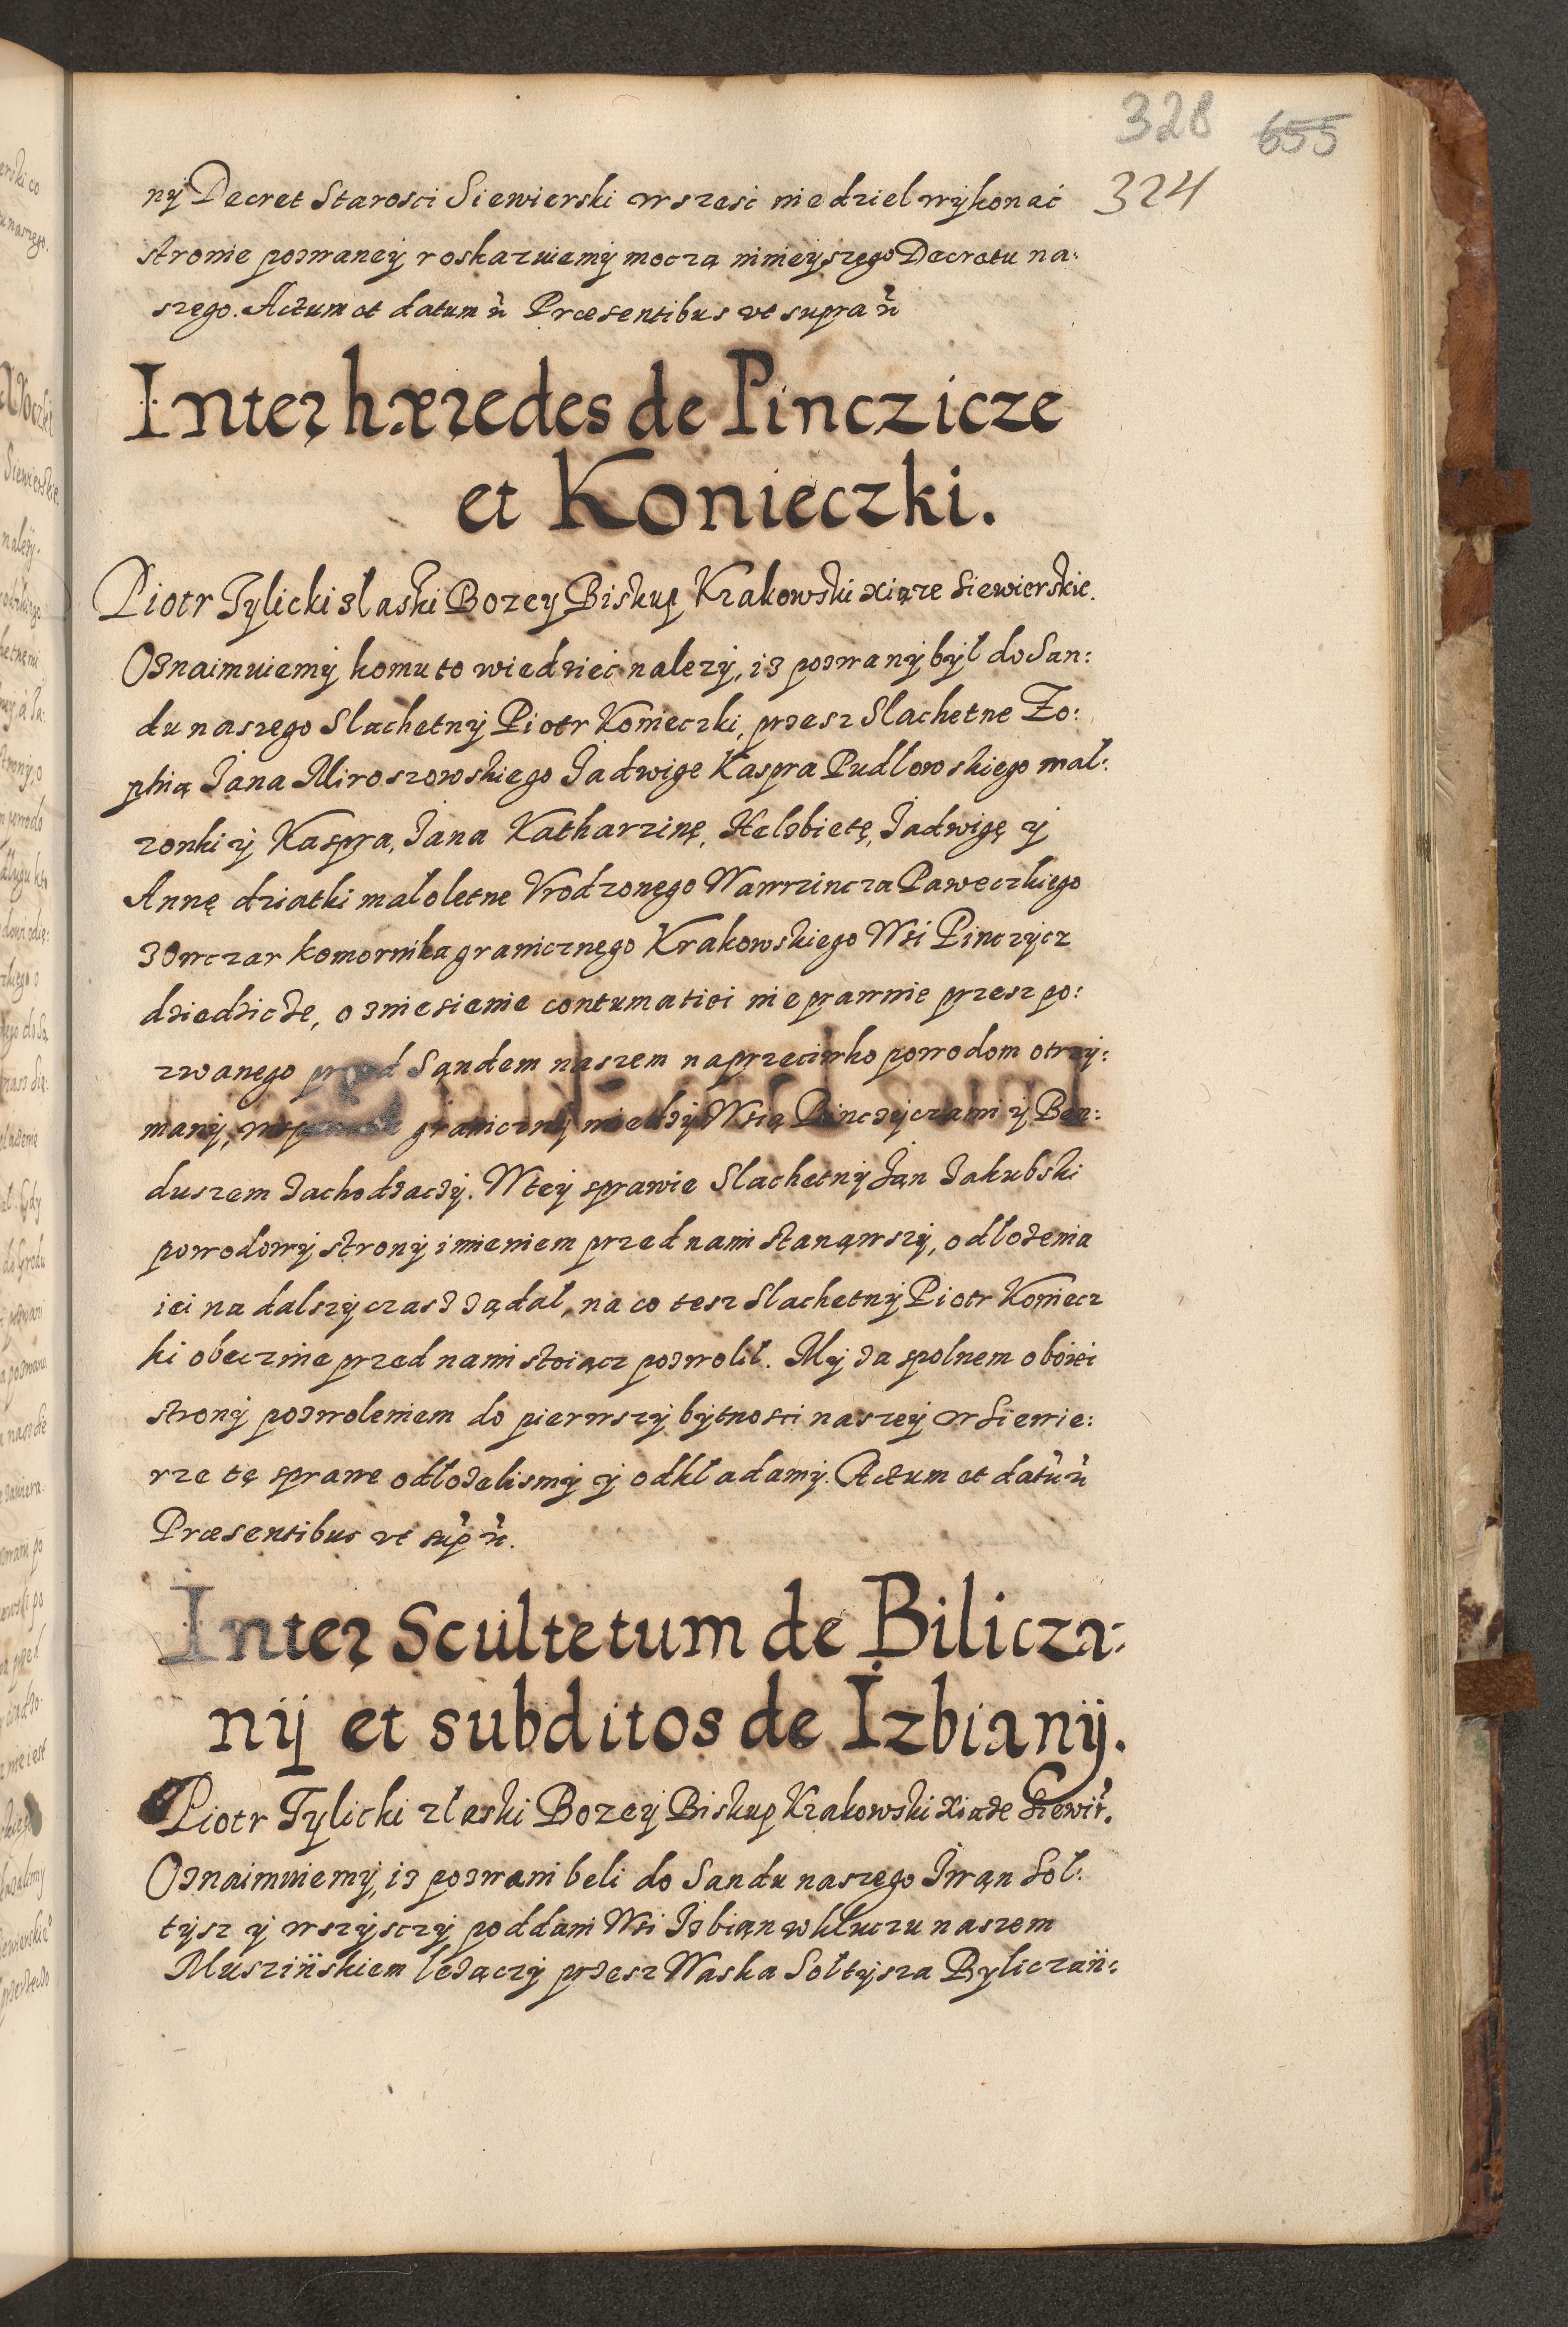 328 655
324
ny Decret Starosci Siewierski w szesc niedziel wykonać
stronie pozwaney roskazuiemy moczą ninieyszego Decretu na:
szego. Actum et datum ῢ Præsentibus vt supra ῢ
Inter hæredes de Pinczicze
et Konieczki.
Piotr Tylicki z łaski Bozey Biskup Krakowski Xiąze Siewierskie.
Oznaimuiemy komu to wiedzieć nalezy, iz pozwany był do San:
du naszego Slachetny Piotr Konieczki, przesz Slachetne Zo:
phią Jana Miroszowskiego Jadwige Kaspra Pudłowskiego mał:
zonki y Kaspra, Jana Katharzinę, Helzbietę, Jadwigę y
Annę dziatki małoletne Vrodzonego Wawrzincza Paweczkiego
z Owczar komornika granicznego Krakowskiego Wsi Pinczycz
dziedzicze, o zniesienie contumatiei nieprawnie przesz po:
zwanego przed Sąndem naszem naprzeciwko powodom otrzy:
many, graniczny miedzy Wsią Pinczyczami y Ben:
duszem zachodzaczy. W tey sprawie Slachetny Jąn Jakubski
powodowy strony imieniem przed nami stanąwszy, odłozenia
iei na dalszy czas zządał, na co tesz Slachetny Piotr Koniecz
ki obecznie przed nami stoiącz pozwolił. My za spolnem oboiei
strony pozwoleniem do pierwszy bytnosci naszey w Siewie:
rze tę sprawe odłozelismy y odkładamy. Actum et datu ῢ
Præsentibus vt sup ῢ.
Inter Scultetum de Bilicza:
ny et subditos de Izbiany.
Piotr Tylicki z łaski Bozey Biskup Krakowski Xiąze Siewir.
Oznaimuiemy, iz pozwani beli do Sandu naszego Iwąn Soł:
tysz y wszysczy poddani Wsi Izbiąn w kluczu naszem
Muszińskiem lezączy przesz Waska Sołtysza Byliczan: